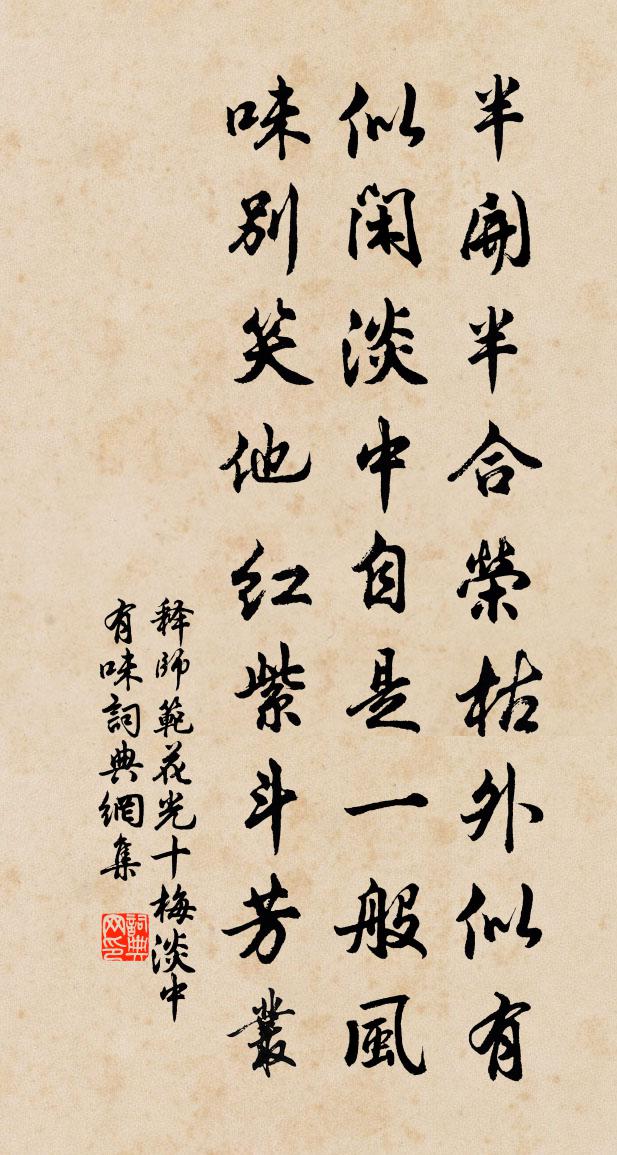 半開半合榮枯外似有
似閑淡中自是一般風
味別笑他紅紫斗芳叢
释師範花光十梅淡中
有味詞典網集
詞典网印